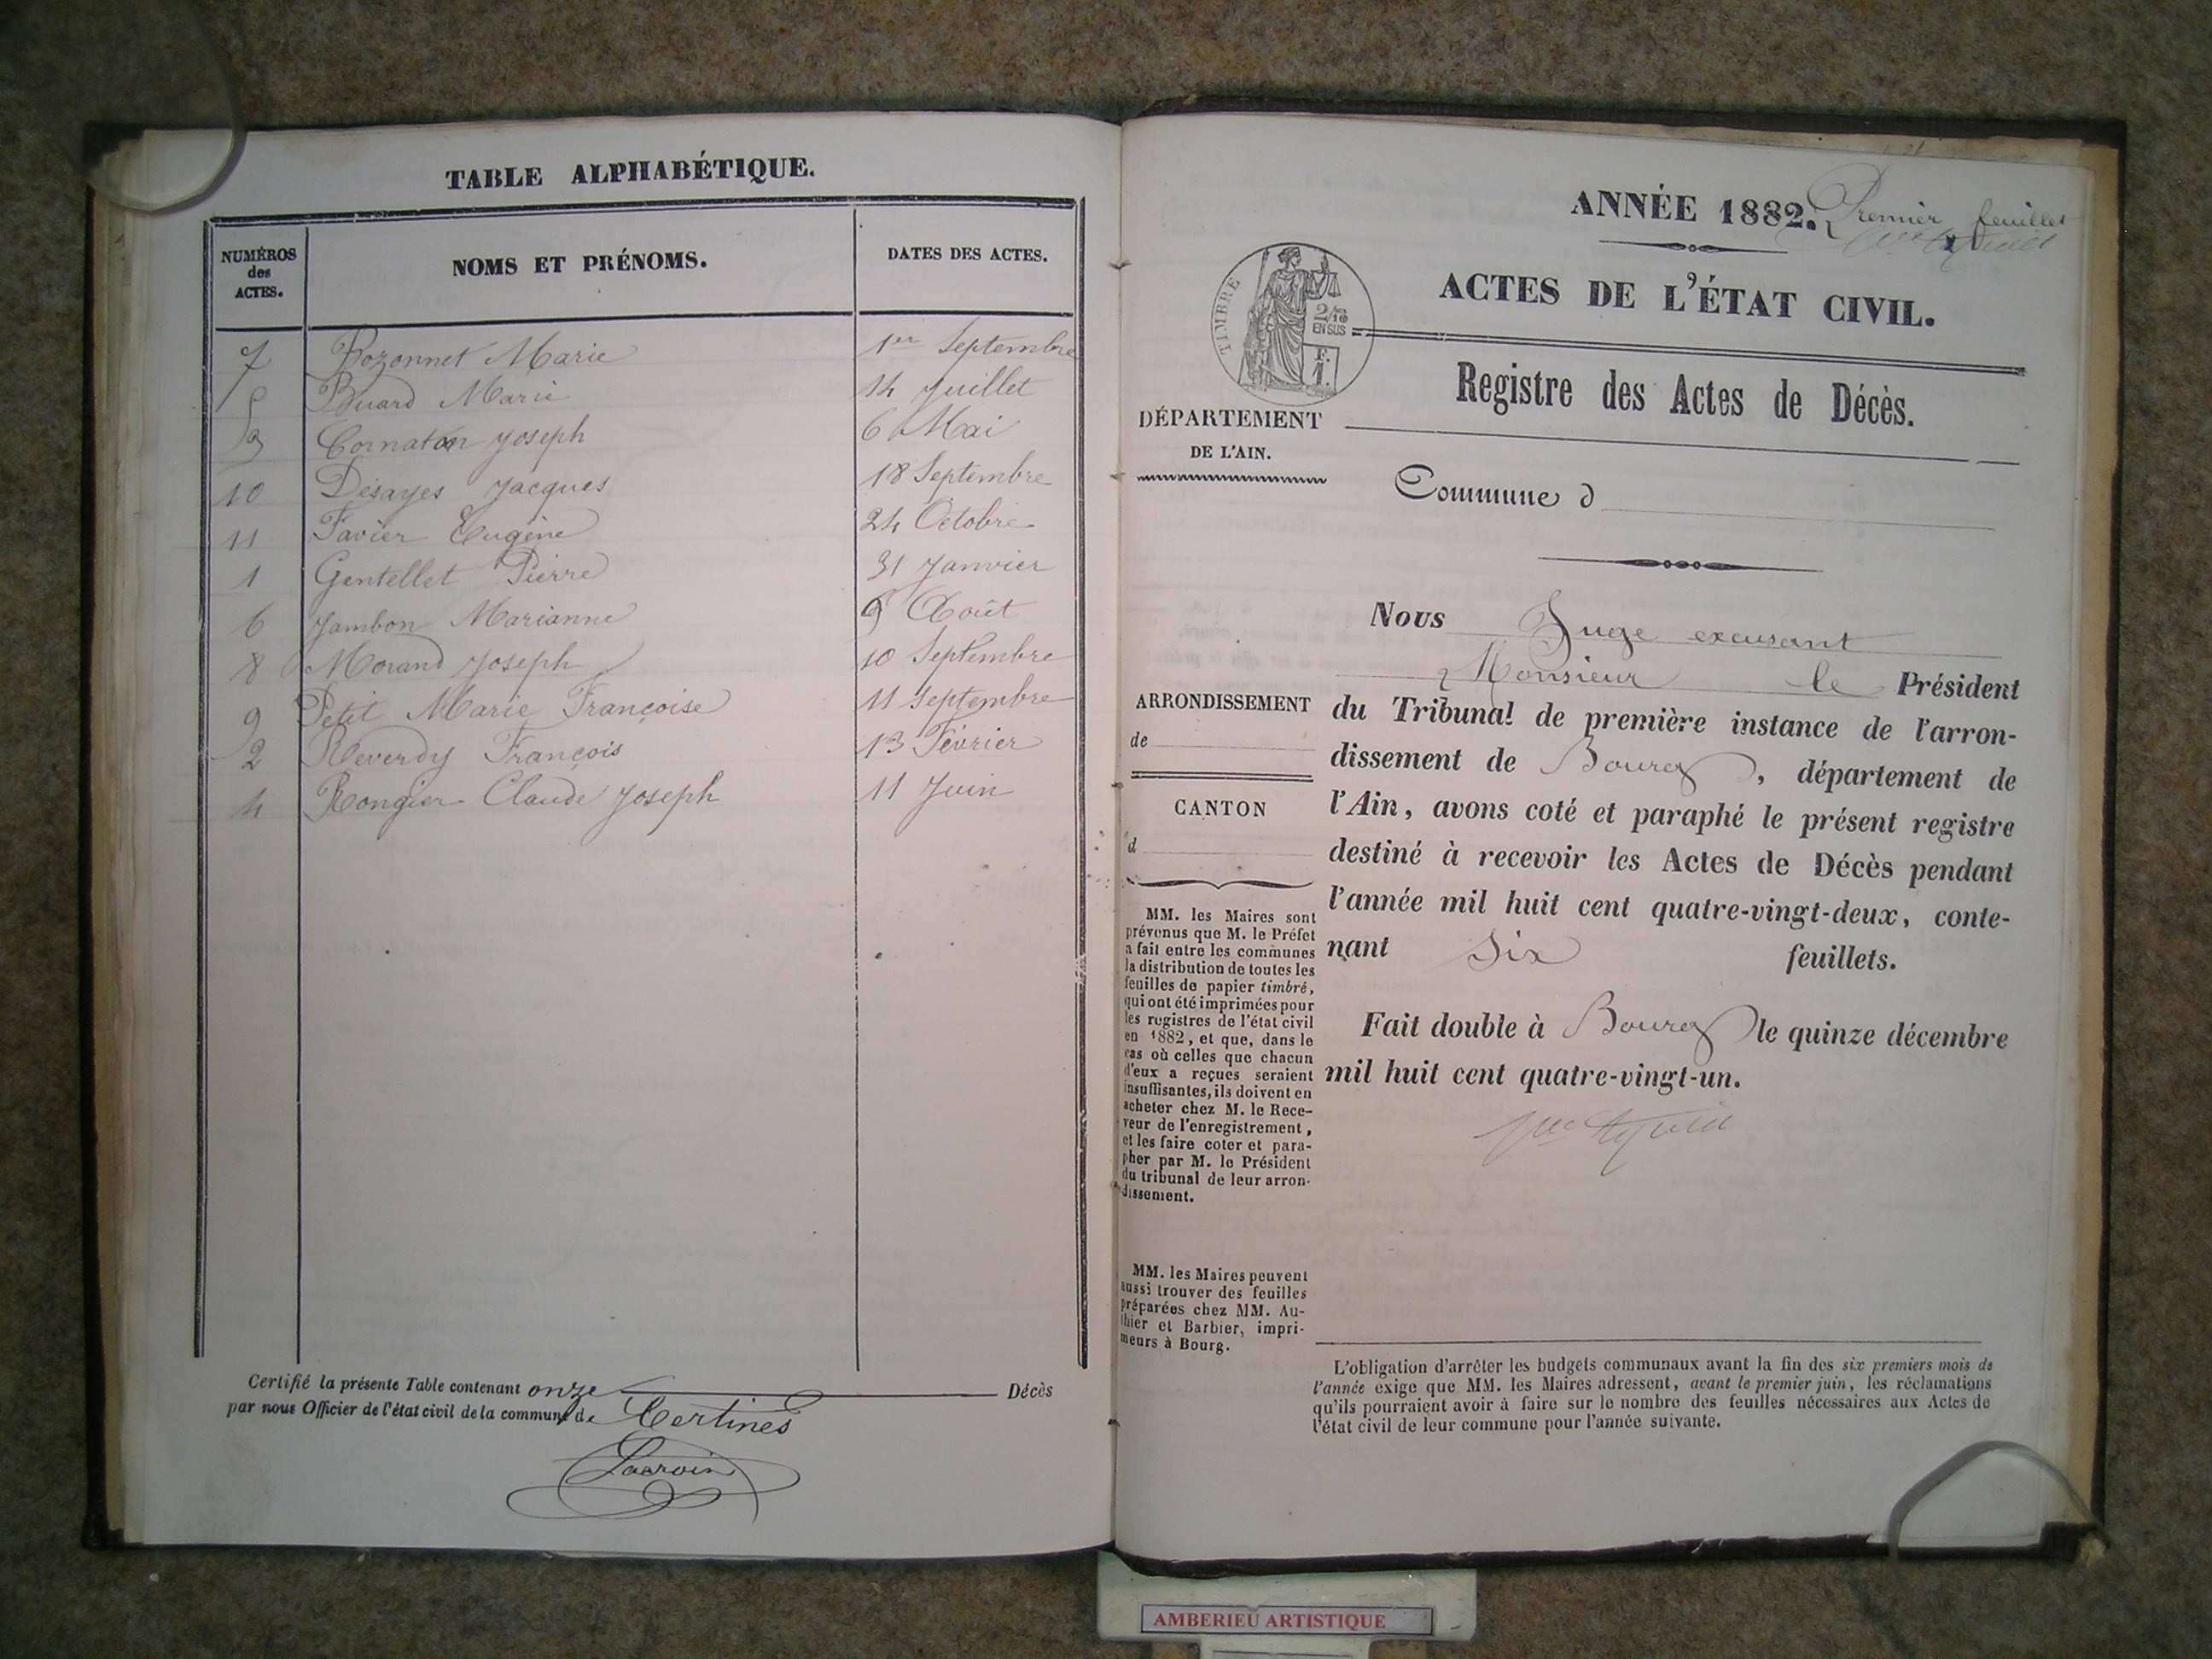 TABLE ALPHABÉTIQUE.
NUMÉROS des ACTES. NOMS ET PRÉNOMS. DATES DES ACTES.
7 Bozonnet Marie 1er Septembre
5 Buard Marie 14 Juillet
3 Cornaton Joseph 6 Mai
10 Desayes Jacques 18 Septembre
11 Favier Eugène 24 Octobre
1 Gentellet Pierre 31 Janvier
6 Jambon Marianne 9 Août
8 Morand Joseph 10 Septembre
9 Petit Marie Françoise 11 Septembre
2 Reverdy François 13 Février
4 Rongier Claude Joseph 11 Juin
Certifié la présente Table contenant onze Décès
par nous Officier de l'état civil de la commune de Certines
Lacroix
ANNÉE 1882. Premier feuillet
ACTES DE L'ÉTAT CIVIL.
TIMBRE
2/10
EN SUS
Registre des Actes de Décès.
DÉPARTEMENT
DE L'AIN.
Commune d
Nous Juge excusant
Monsieur le Président
du Tribunal de première instance de l'arron-
dissement de Bourg, département de
l'Ain, avons coté et paraphé le présent registre
destiné à recevoir les Actes de Décès pendant
l'année mil huit cent quatre-vingt-deux, conte-
nant six feuillets.
Fait double à Bourg le quinze décembre
mil huit cent quatre-vingt-un.
ARRONDISSEMENT
de
CANTON
d
MM. les Maires sont
prévenus que M. le Préfet
a fait entre les communes
la distribution de toutes les
feuilles de papier timbré,
qui ont été imprimées pour
les registres de l'état civil
en 1882, et que, dans le
cas où celles que chacun
d'eux a reçues seraient
insuffisantes, ils doivent en
acheter chez M. le Rece-
veur de l'enregistrement,
et les faire coter et para-
pher par M. le Président
du tribunal de leur arron-
dissement.
MM. les Maires peuvent
aussi trouver des feuilles
préparées chez MM. Au-
thier et Barbier, impri-
meurs à Bourg.
L'obligation d'arrêter les budgets communaux avant la fin des six premiers mois de
l'année exige que MM. les Maires adressent, avant le premier juin, les réclamations
qu'ils pourraient avoir à faire sur le nombre des feuilles nécessaires aux Actes de
l'état civil de leur commune pour l'année suivante.
AMBERIEU ARTISTIQUE